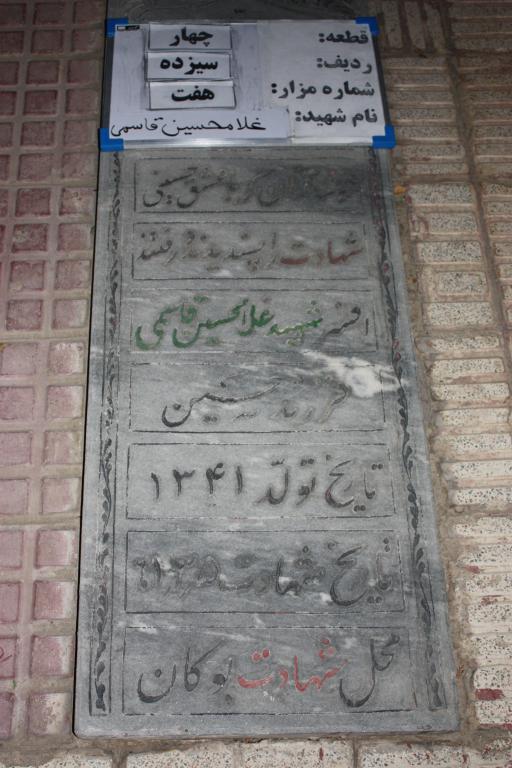 قطعه: چهار
ردیف: سیزده
شماره مزار: هفت
نام شهید: غلامحسین قاسمی
عشق حسینی
شهادت را پسندیدند و رفتند
افسر شهید غلامحسین قاسمی
فرزند حسنین
تاریخ تولد ۱۳۴۱
تاریخ شهادت
محل شهادت بوکان